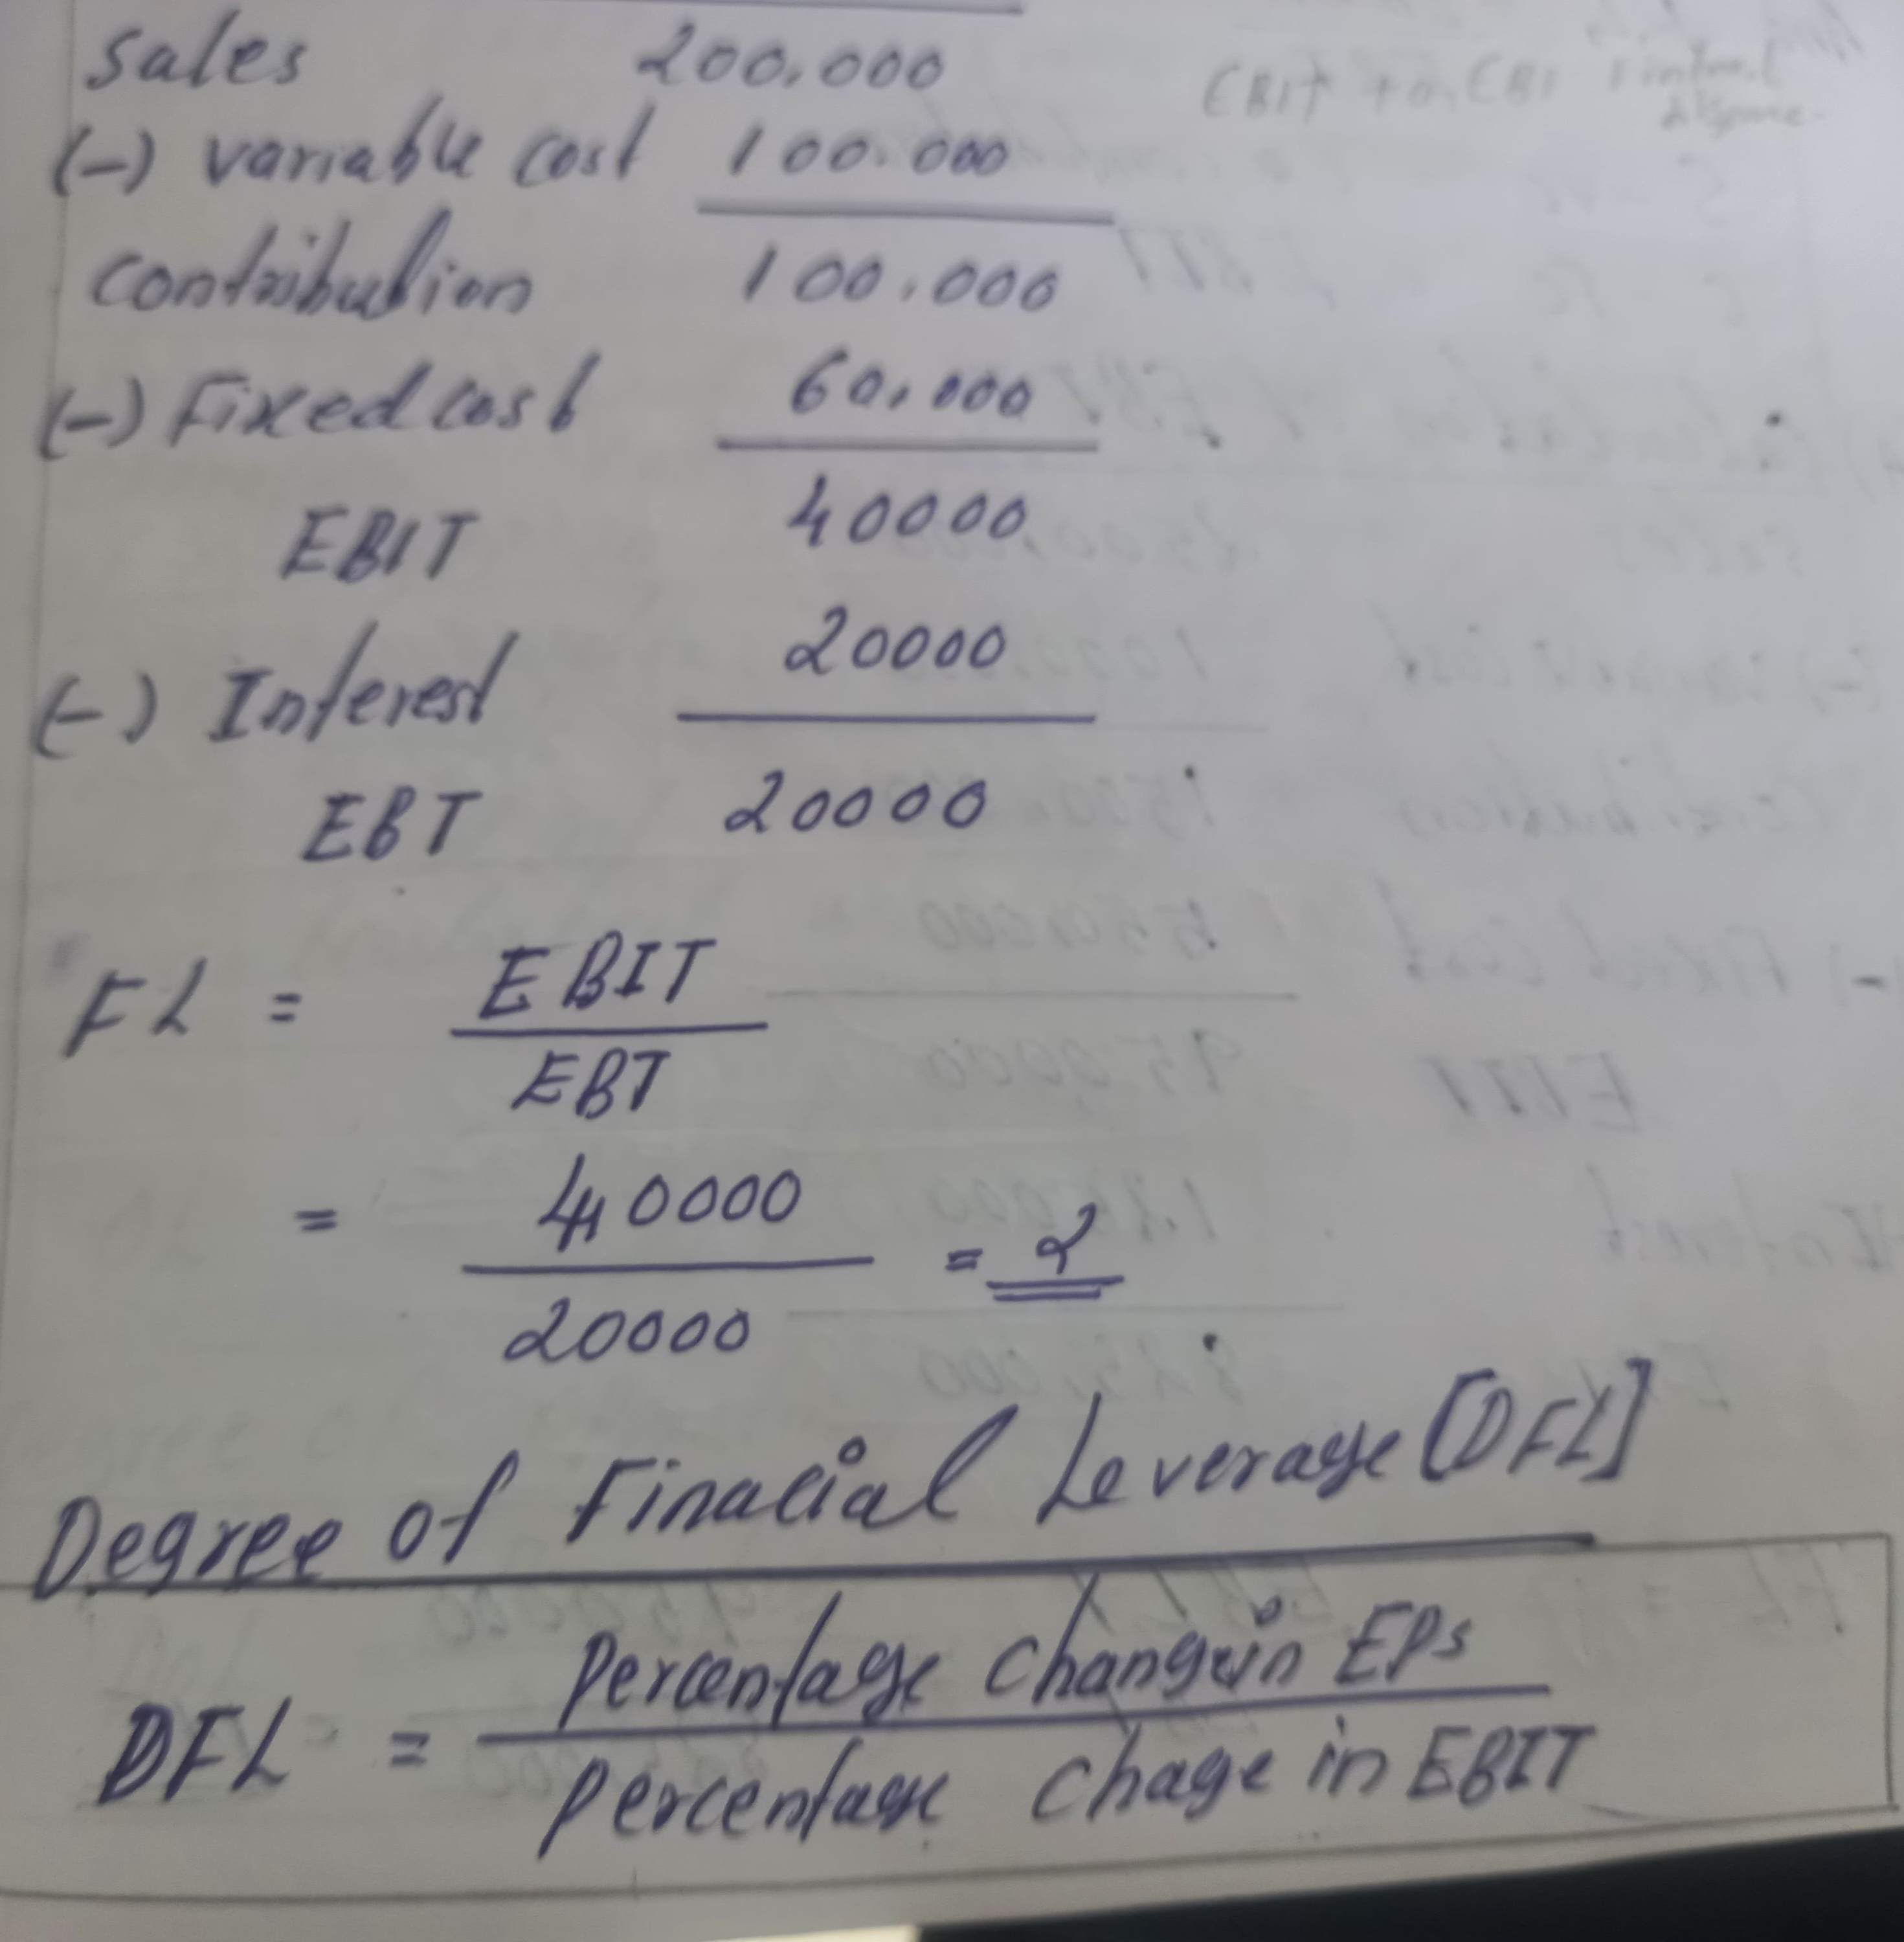 Sales 200,000
(-) variable cost 100.000
Contribution 100,000
(-) Fixed cost 60,000
EBIT 40000
(-) Interest 20000
EBT 20000
FL = EBIT
EBT
= 40000
20000
= 2
Degree of Finacial Leverage [DFL]
DFL = Percentage Change in EPS
Percentage Chage in EBIT